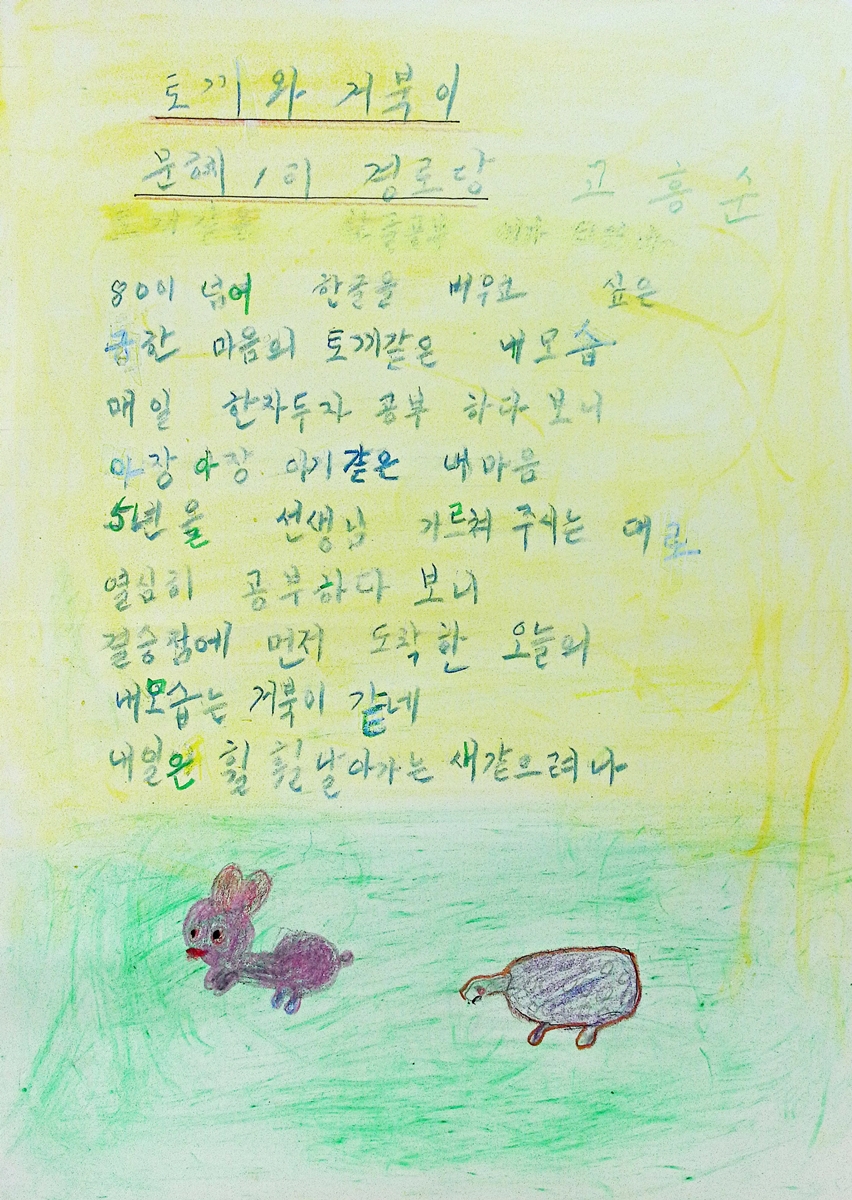 토끼와 거북이
문혜1리 경로당 고흥순
80이 넘어 한글을 배우고 싶은
급한 마음의 토끼같은 내모습
매일 한자두자 공부 하다 보니
아장 아장 아기같은 내마음
5년을 선생님 가르쳐 주시는 대로
열심히 공부하다 보니
결승점에 먼저 도착한 오늘의
내모습는 거북이 같네
내일은 훨훨날아가는 새같으려나